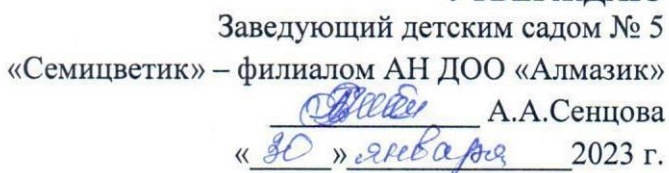 Заведующий детским садом № 5
«Семицветик» – филиалом АН ДОО «Алмазик»
А.А.Сенцова
«30» января 2023 г.